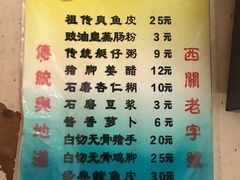 祖传爽鱼皮 25元
豉油皇蒸肠粉 3元
传统艇仔粥 9元
猪脚姜醋 12元
石磨杏仁糊 10元
石磨豆浆 3元
酱香萝卜 6元
白切无骨猪手 20元
白切无骨鸡脚 25元
鱼皮 30元
傳統與地道
西關老字號